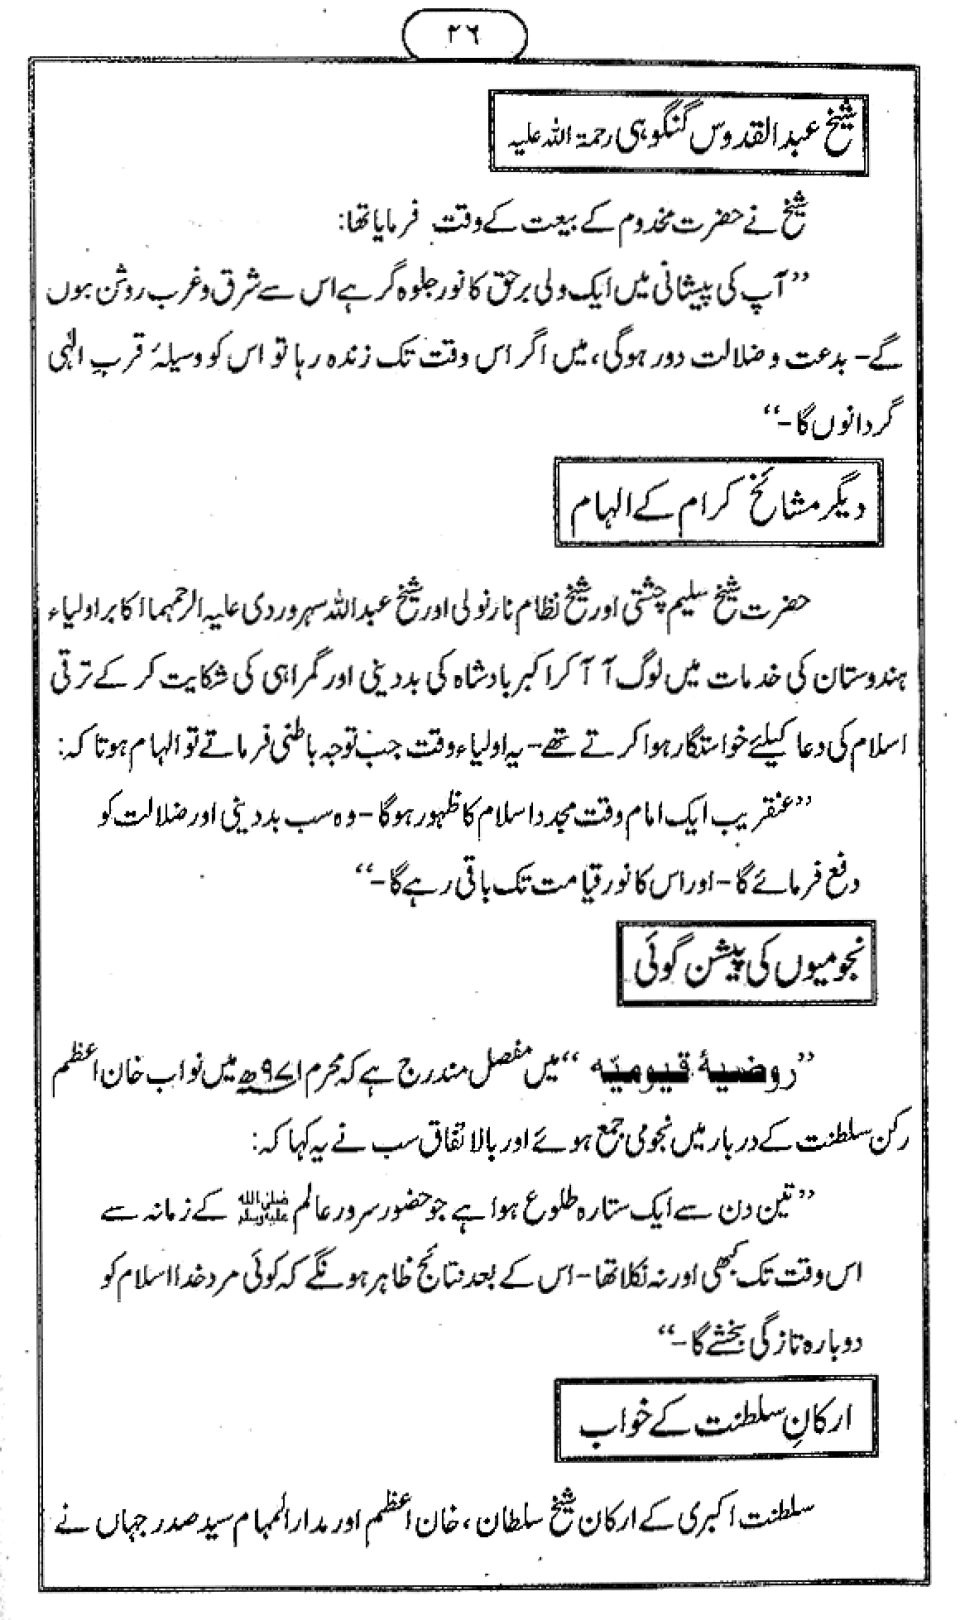 ۲۶
شیخ عبدالقدوس گنگوہی رحمۃ اللہ علیہ
شیخ نے حضرت مخدوم کے بیعت کے وقت فرمایا تھا:
”آپ کی پیشانی میں ایک ولی برحق کا نور جلوہ گر ہے اس سے شرق و غرب روشن ہوں
گے- بدعت و ضلالت دور ہوگی، میں اگر اس وقت تک زندہ رہا تو اس کو وسیلۂ قربِ الٰہی
گردانوں گا-“
دیگر مشائخ کرام کے الہام
حضرت شیخ سلیم چشتی اور شیخ نظام نارنولی اور شیخ عبداللہ سہروردی علیہ الرحمہما اکابر اولیاء
ہندوستان کی خدمات میں لوگ آ آ کر اکبر بادشاہ کی بددینی اور گمراہی کی شکایت کر کے ترقی
اسلام کی دعا کیلئے خواستگار ہوا کرتے تھے- یہ اولیاء وقت جب توجہ باطنی فرماتے تو الہام ہوتا کہ:
”عنقریب ایک امام وقت مجدد اسلام کا ظہور ہوگا- وہ سب بددینی اور ضلالت کو
دفع فرمائے گا- اور اس کا نور قیامت تک باقی رہے گا-“
نجومیوں کی پیشن گوئی
”روضیۂ قیومیّہ“ میں مفصل مندرج ہے کہ محرم ۹۷۱ھ میں نواب خان اعظم
رکن سلطنت کے دربار میں نجومی جمع ہوئے اور بالاتفاق سب نے یہ کہا کہ:
”تین دن سے ایک ستارہ طلوع ہوا ہے جو حضور سرور عالم ﷺ کے زمانہ سے
اس وقت تک کبھی اور نہ نکلا تھا- اس کے بعد نتائج ظاہر ہونگے کہ کوئی مرد خدا اسلام کو
دوبارہ تازگی بخشے گا-“
ارکانِ سلطنت کے خواب
سلطنت اکبری کے ارکان شیخ سلطان، خان اعظم اور مدارالمہام سید صدر جہاں نے